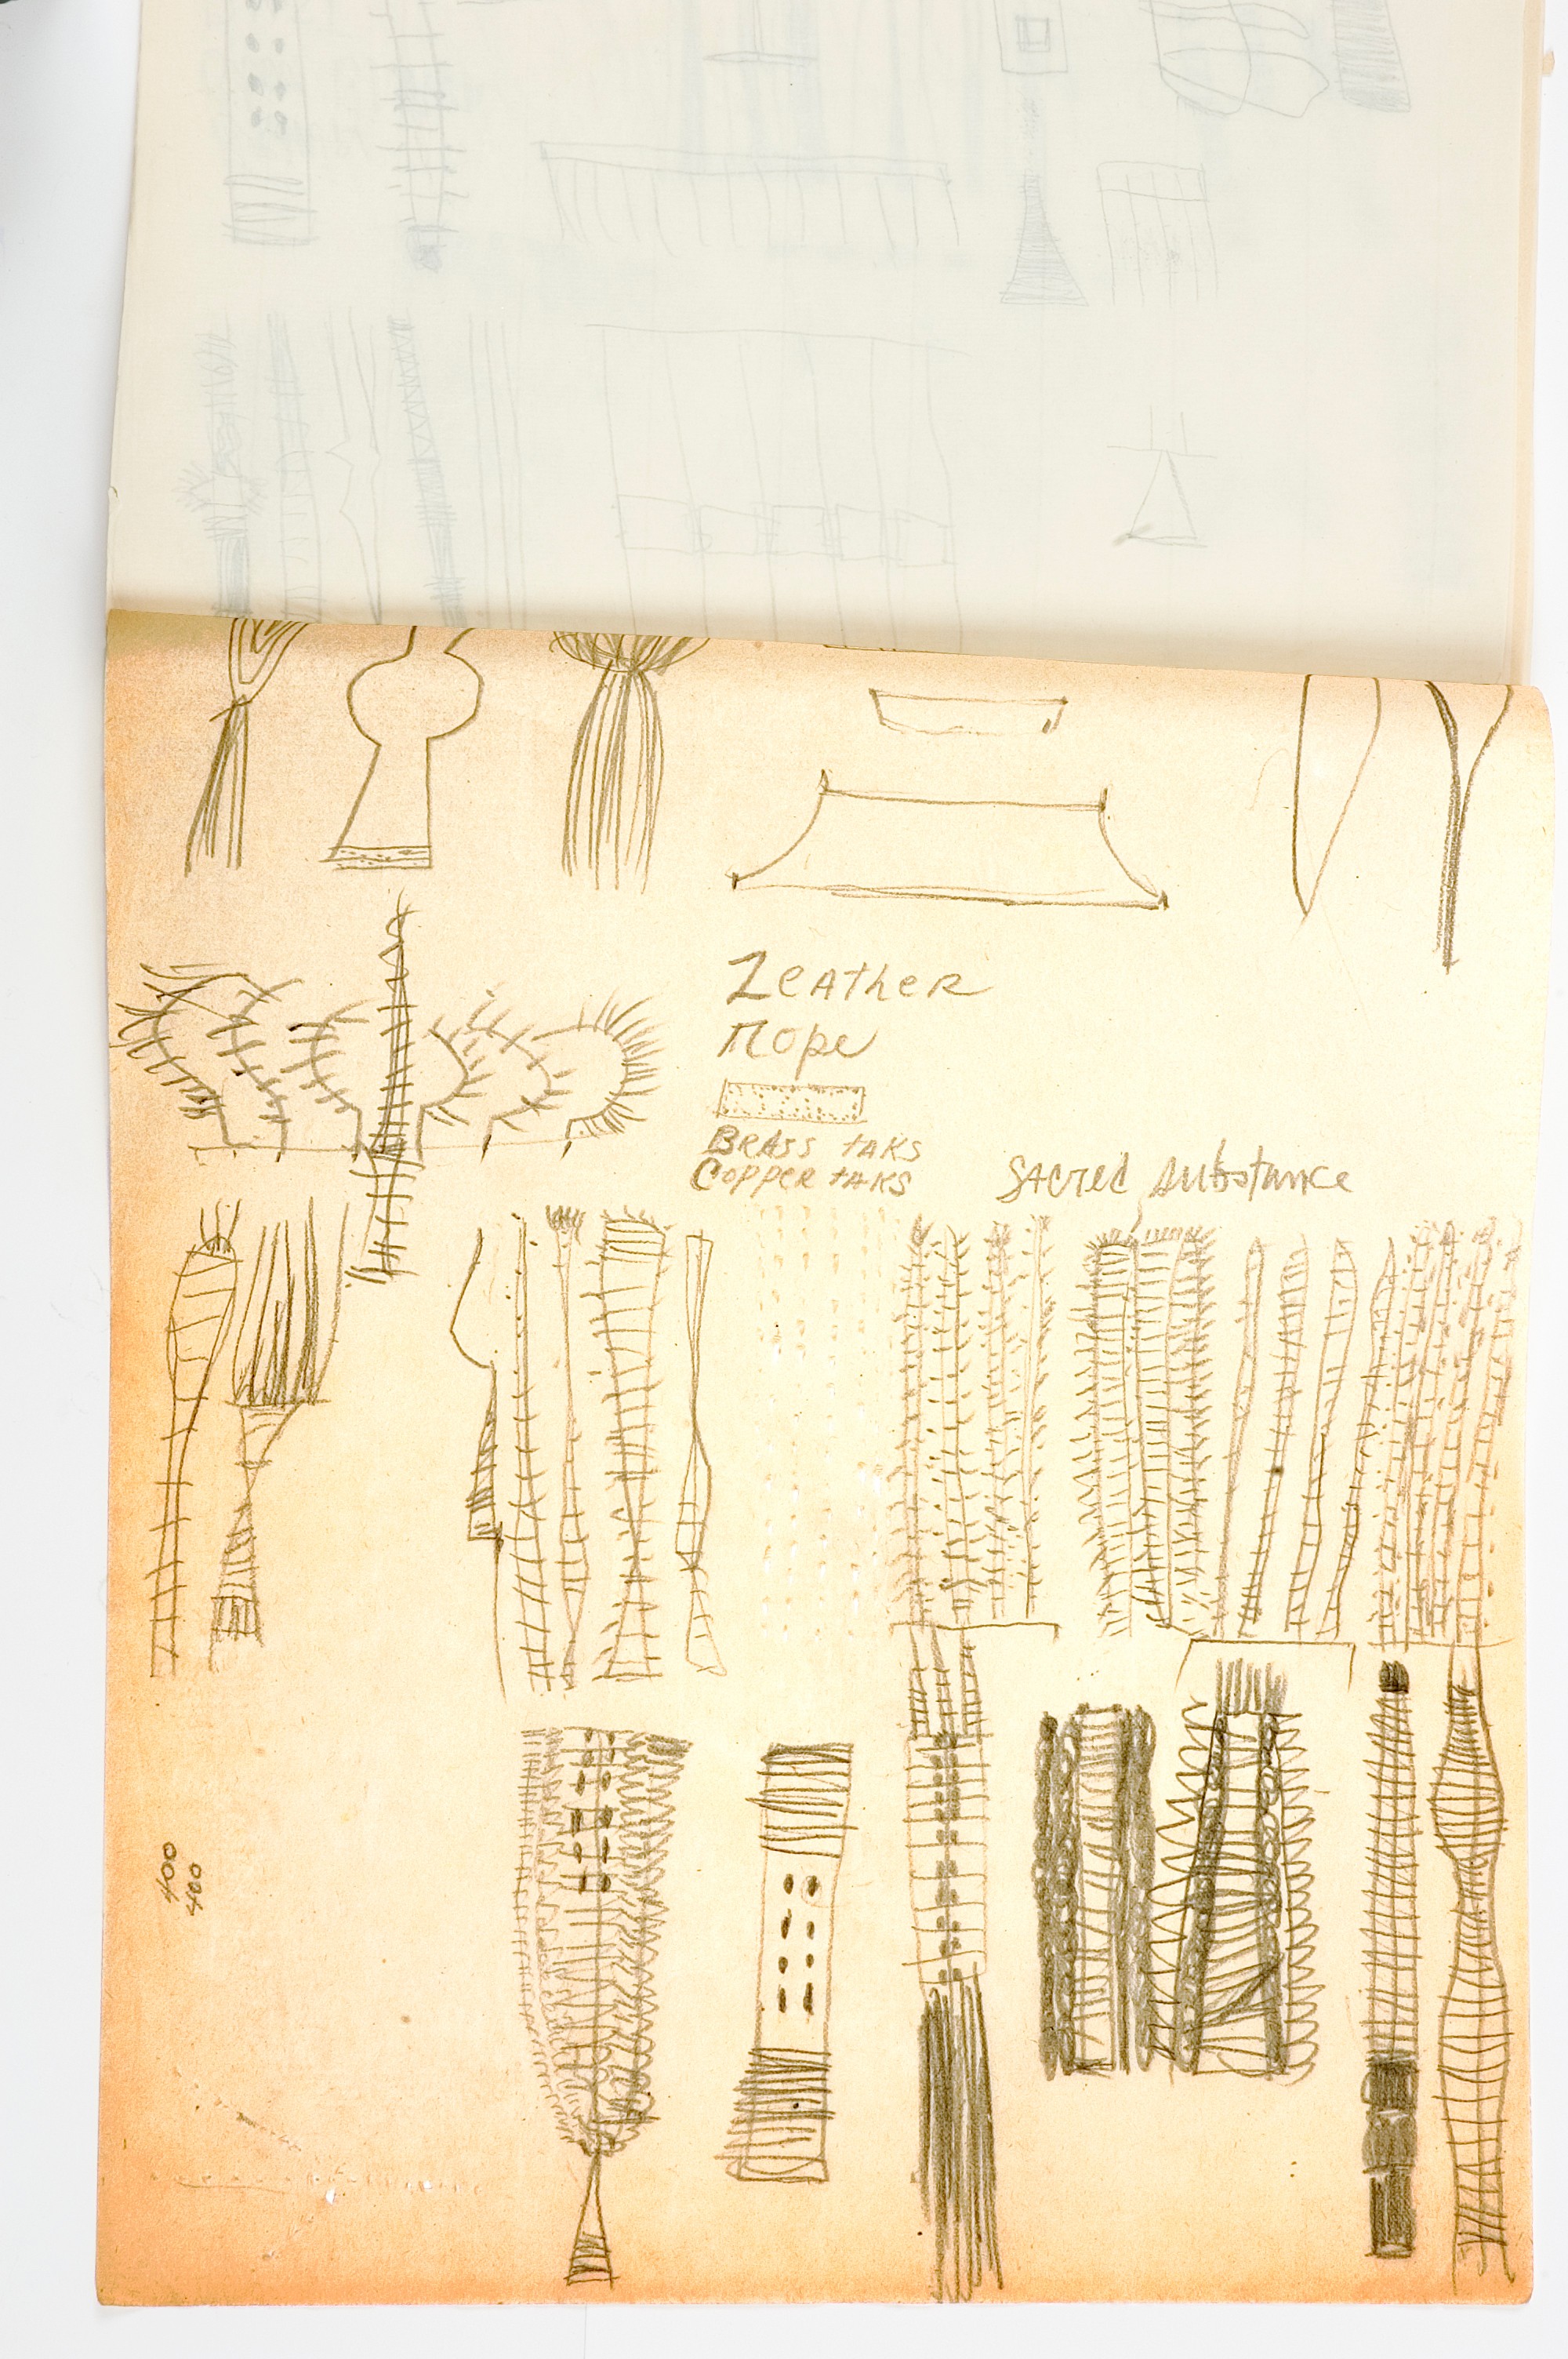 Leather
Rope
Brass taks
Copper taks
Sacred substance
400
400